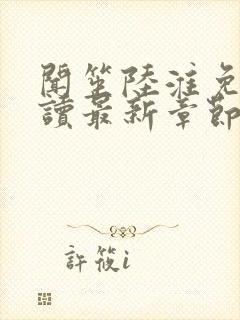 聞笙陸淮免
讀最新章節
許筱i